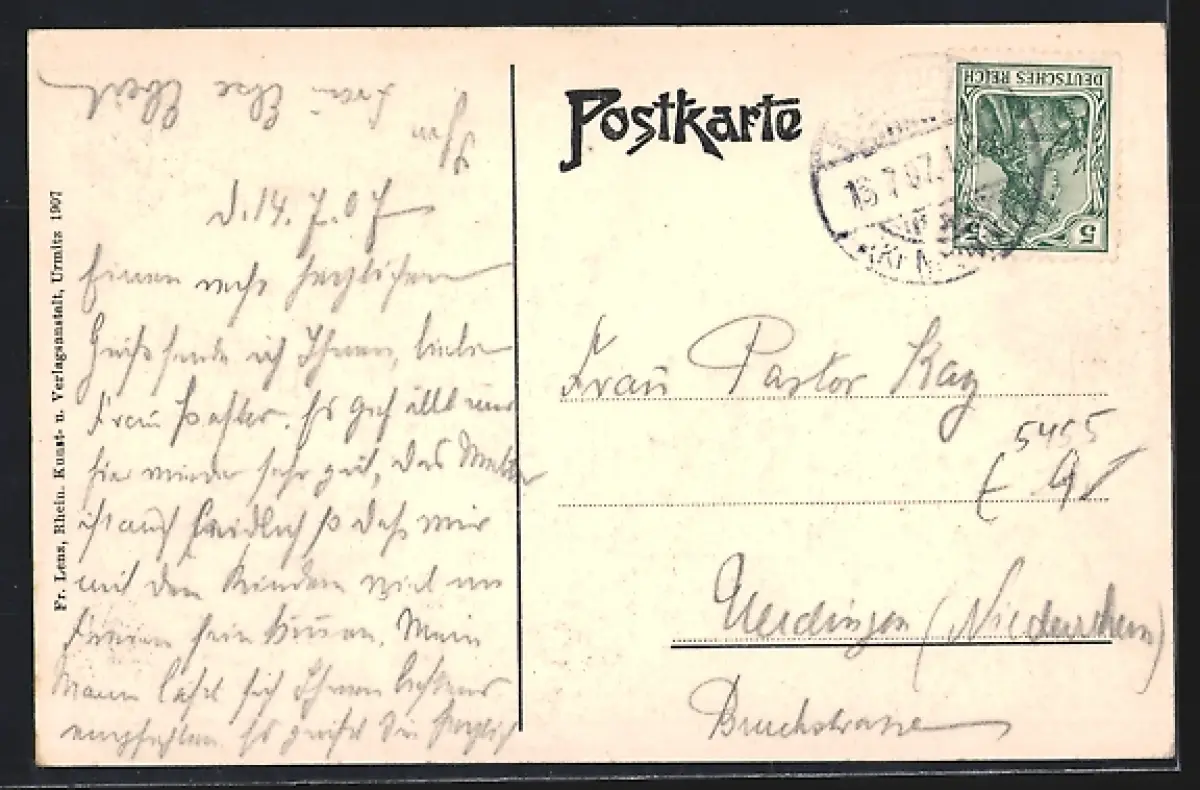 d. 14. 7. 07
Einen recht herzlichen
Gruß sende ich Ihnen, liebe
Frau Pastor. Es geht uns
hier wieder sehr gut, das Wetter
ist auch so daß wir
mit den Kindern viel im
Freien sein können. Mein
Mann läßt sich Ihnen bestens
empfehlen. Es grüßt Sie herzlich
Ihre
Frau Else
Fr. Lenz, Rhein. Kunst- u. Verlagsanstalt, Urmitz 1907
Postkarte
DEUTSCHES REICH
5 5
7.07.
Frau Pastor Kay
5455
Uerdingen (Niederrhein)
Bruchstrasse